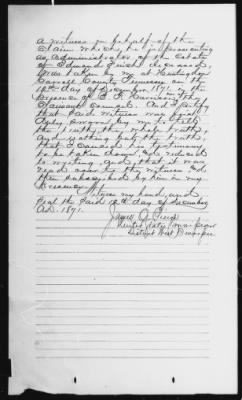 a witness in behalf of the
claim which he is prosecuting
as administrator of the Estate
of Edmund deceased,
was taken by me at Huntingdon
Carroll County Tennessee on the
12th day of December 1871, in the
presence of
Claimants Counsel. And I certify
that said witness was first
duly sworn by me to tell
the truth, the whole truth,
and nothing but the truth
that I caused his testimony
to be taken down, and reduced
to writing and, that it was
read over to the witness and
then subscribed by him in my
presence.
Witness my hand, and
seal the said 12th day of December
A.D. 1871.
James
United States Commissioner
District West Tennessee